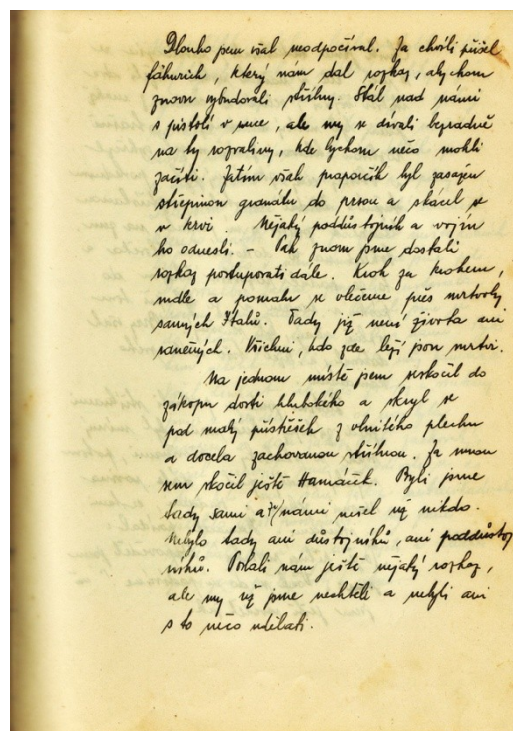 Dlouho jsem však neodpočíval. Za chvíli přišel
fähnrich, který nám dal rozkaz, abychom
znovu vybudovali střílny. Stál nad námi
s pistolí v ruce, ale my se dívali bezradně
na ty rozvaliny, kde bychom něco mohli
začíti. Zatím však praporčík byl zasažen
střepinou granátu do prsou a skácel se
v krvi. Nějaký poddůstojník a vojín
ho odnesli. - Pak znovu jsme dostali
rozkaz postupovati dále. Krok za krokem,
mdle a pomalu se vlečeme přes mrtvoly
samých Italů. Tady již není života ani
raněných. Všichni, kdo zde leží jsou mrtvi.
Na jednom místě jsem seskočil do
zákopu dosti hlubokého a skryl se
pod malý přístěšek z vlnitého plechu
a docela zachovanou střílnou. Za mnou
sem skočil ještě Hamáček. Byli jsme
tady sami a za námi nešel už nikdo.
Nebylo tady ani důstojníků, ani poddůstoj
níků. Poslali nám ještě nějaký rozkaz,
ale my už jsme nechtěli a nebyli ani
s to něco udělati.